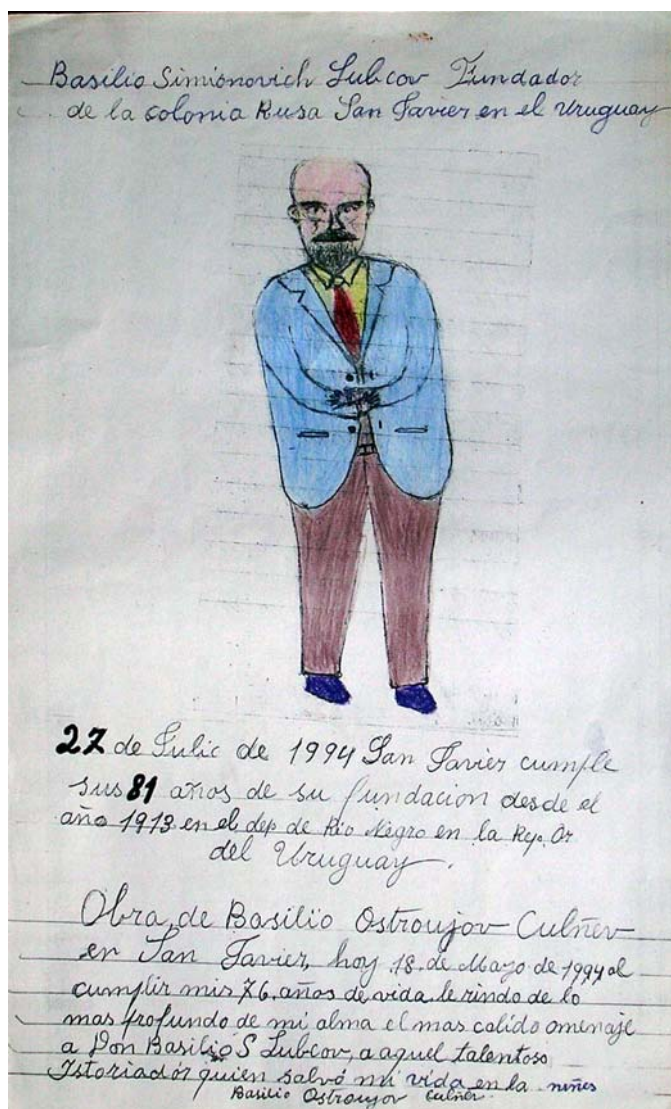 Basilio Simionovich Lubcov Fundador
de la colonia Rusa San Javier en el Uruguay
27 de Julio de 1994 San Javier cumple
sus 81 años de su fundacion desde el
año 1913 en el dep de Río Negro en la Rep. Or
del Uruguay.
Obra de Basilio Ostroujov Culñev
en San Javier, hoy 18 de Mayo de 1994 al
cumplir mis 76 años de vida le rindo de lo
mas profundo de mi alma el mas calido omenaje
a Don Basilio S Lubcov, a aquel talentoso
Istoriador quien salvó mi vida en la niñes
Basilio Ostroujov Culñev